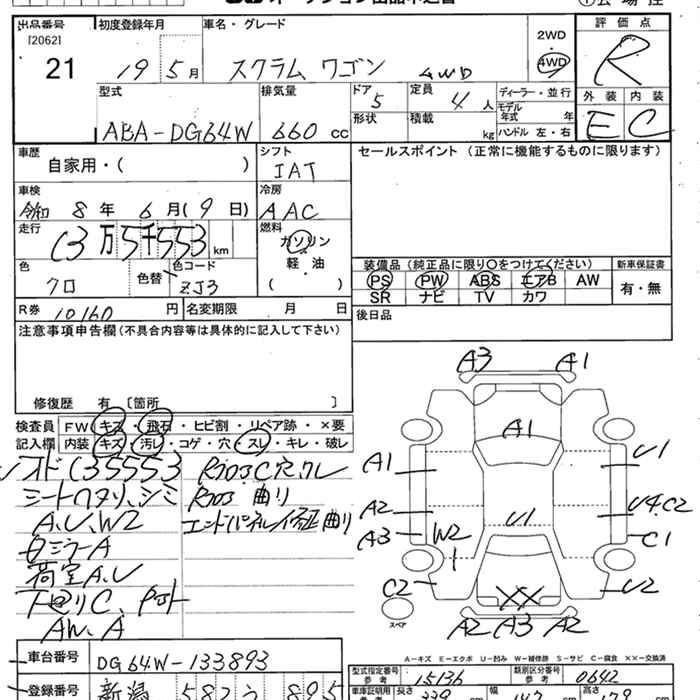 出品番号 初度登録年月 車名・グレード 2WD 評価点
[2062] 21 19 5月 スクラム ワゴン 4WD 4WD R
型式 排気量 ドア 定員 ディーラー・並行 外装 内装
ABA-DG64W 660 cc 5 4人 モデル年式 年 E C
形状 積載 kg ハンドル 左・右
車歴 シフト セールスポイント (正常に機能するものに限ります)
自家用・( ) IAT
車検 冷房
令和 8年 6月(9日) AAC
走行 燃料
(3万5千553 km ガソリン
軽・油
( )
色 色替 色コード 装備品(純正品に限り○をつけてください) 新車保証書
クロ ZJ3 PS PW ABS エアB AW 有・無
SR ナビ TV カワ
R券 10160 円 名変期限 月 日 後日品
注意事項申告欄(不具合内容等は具体的に記入して下さい)
修復歴 有 [箇所 ]
検査員 FW キズ・飛石・ヒビ割・リペア跡・×要
記入欄 内装 キズ・汚レ・コゲ・穴・スレ・キレ・破レ
A3 A1
A1
A1 U1
A2 U1 U4.C2
A3 W2 C1
C2 XX U2
スペア A2 A3 A2
A,U,W2
ミラーA
荷室A,U
AW、A
A-キズ E-エクボ U-凹み W-補修跡 S-サビ C-腐食 ××-交換済
車台番号 DG64W-133893
型式指定番号 15136 類別区分番号 0642
参考 参考
登録番号 新潟 582 う 895
車庫証明用 長さ 339 幅 147 高さ